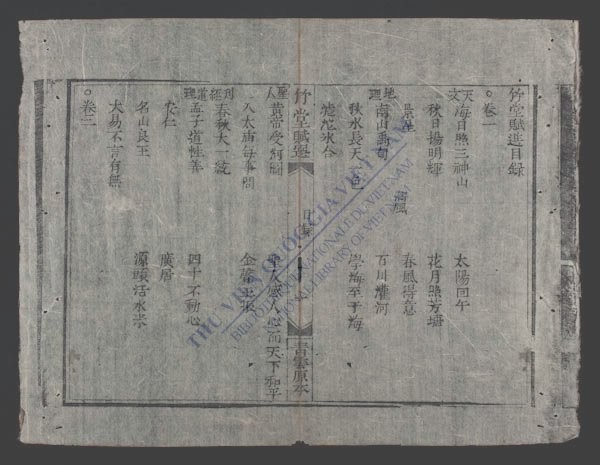 竹堂賦選目錄
卷一
天文
海日照三神山
太陽回午
秋月揚明輝
花月照芳塘
景星
清風
春風得意
地理
南山
百川灌河
秋水長天一色
學海至于海
滹沱冰合
竹堂賦選
目錄
青雲原本
聖人
黃帝受河圖
聖人感人心而天下和平
入太廟每事問
金聲玉振
列經道理
春秋大一統
孟子道性善
四十不動心
安仁
廣居
名山良玉
源頭活水來
大易不言有無
卷二
THƯ VIỆN QUỐC GIA VIỆT NAM
BIBLIOTHÈQUE NATIONALE DU VIETNAM
NATIONAL LIBRARY OF VIETNAM